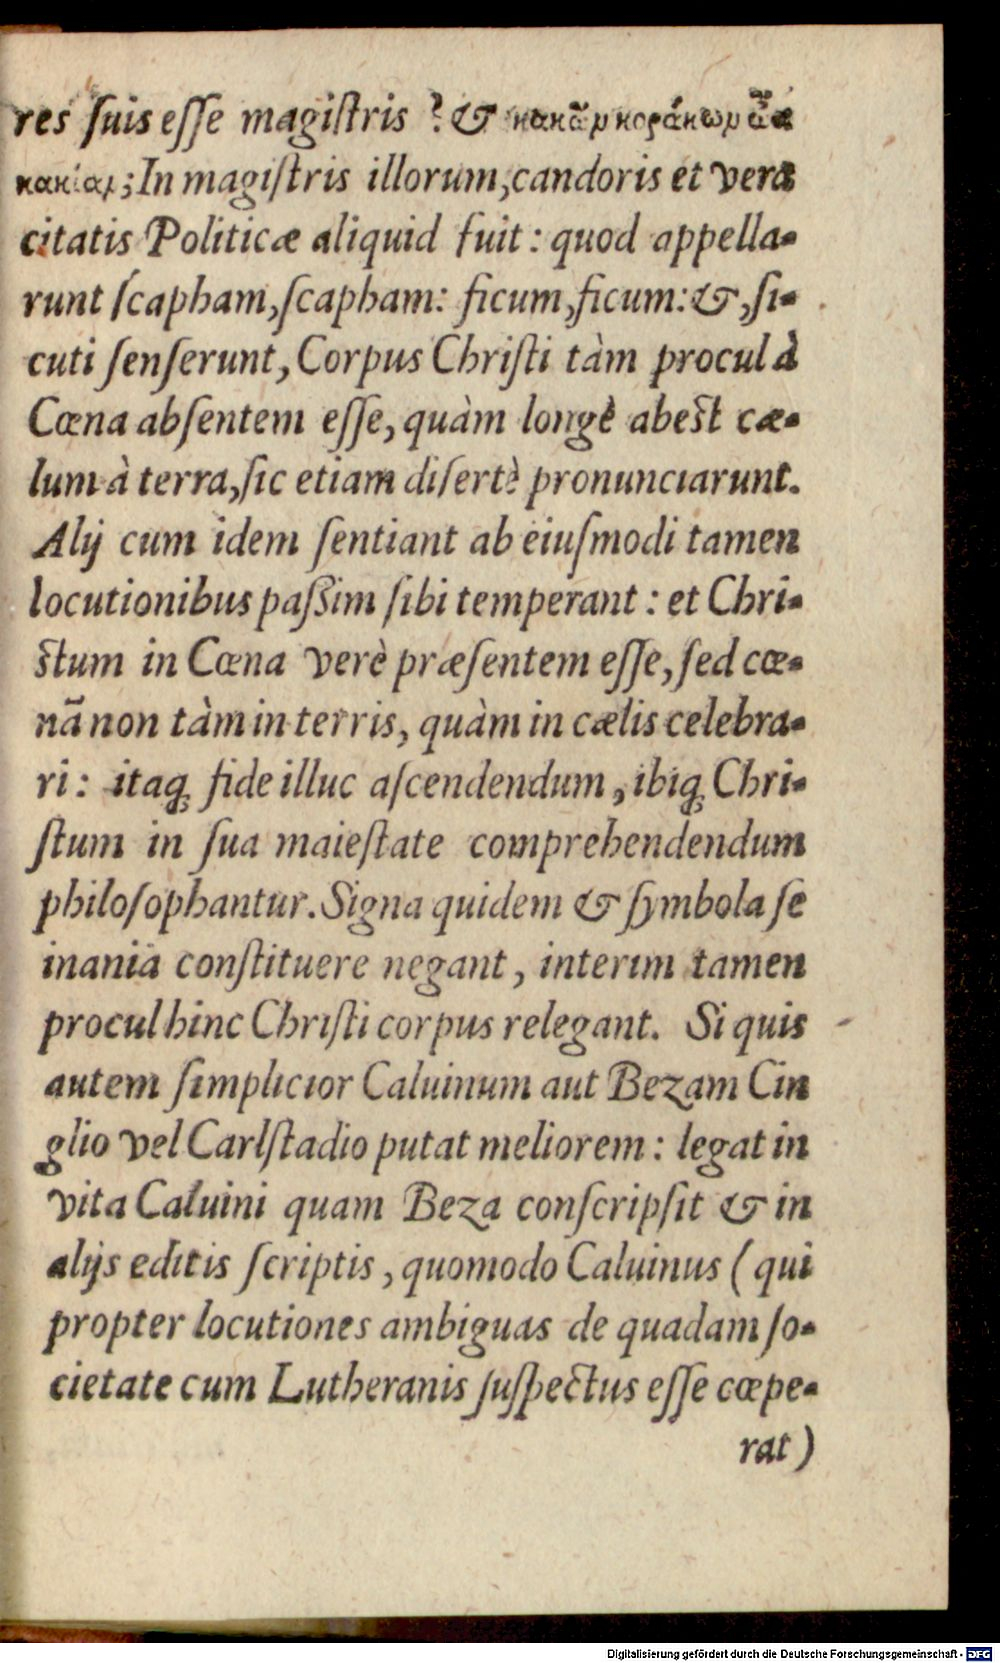 res ſuis eſſe magiſtris ? & κακῶν κοράκων
κακίαι; In magiſtris illorum, candoris et vera
citatis Politicæ aliquid fuit : quod appella-
runt ſcapham, ſcapham: ficum, ficum: &, ſi-
cuti ſenſerunt, Corpus Chriſti tàm procul à
Cœna abſentem eſſe, quàm longè abeſt cæ-
lum à terra, ſic etiam diſertè pronunciarunt.
Alij cum idem ſentiant ab eiuſmodi tamen
locutionibus paſſim ſibi temperant : et Chri-
ſtum in Cœna verè præſentem eſſe, ſed cœ-
nã non tàm in terris, quàm in cælis celebra-
ri : itaq; fide illuc aſcendendum, ibiq; Chri-
ſtum in ſua maieſtate comprehendendum
philoſophantur. Signa quidem & ſymbola ſe
inania conſtituere negant, interim tamen
procul hinc Chriſti corpus relegant. Si quis
autem ſimplicior Caluinum aut Bezam Cin
glio vel Carlſtadio putat meliorem : legat in
vita Caluini quam Beza conſcripſit & in
alijs editis ſcriptis, quomodo Caluinus ( qui
propter locutiones ambiguas de quadam ſo-
cietate cum Lutheranis ſuſpectus eſſe cœpe-
rat )
Digitalisierung gefördert durch die Deutsche Forschungsgemeinschaft - DFG